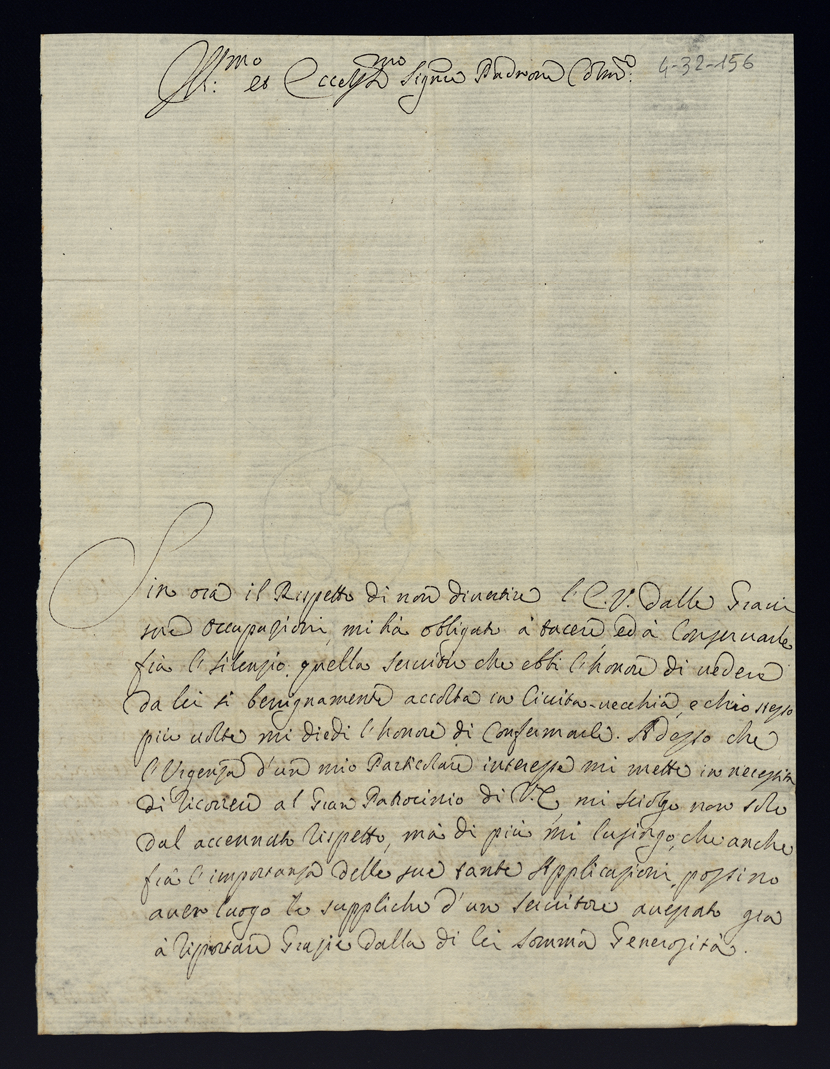 Ill:mo et Eccell:mo Signre Padrone Colmo: 4-32-156
Sin ora il Rispetto di non divertire l'E.V. dalle Gravi
sue occupazioni, mi hà obligato à tacere, ed à Conservarle
frà l'silenzio quella servitù che ebbi l'honore di vedere
da lei si benignamente accolta in Civita-vecchia, e ch'io stesso
più volte mi diedi l'honore di Confermarle. Adesso che
l'Urgenza d'un mio Particolare interesse mi mette in necessità
di ricorrere al Gran Patrocinio di V.E, mi sciolgo non solo
dal accennato rispetto, mà di più mi lusingo, che anche
frà l'importanza delle sue sante Applicazioni, possino
aver luogo le suppliche d'un servitore avezzato già
à riportare Grazie dalla di lei somma Generosità.